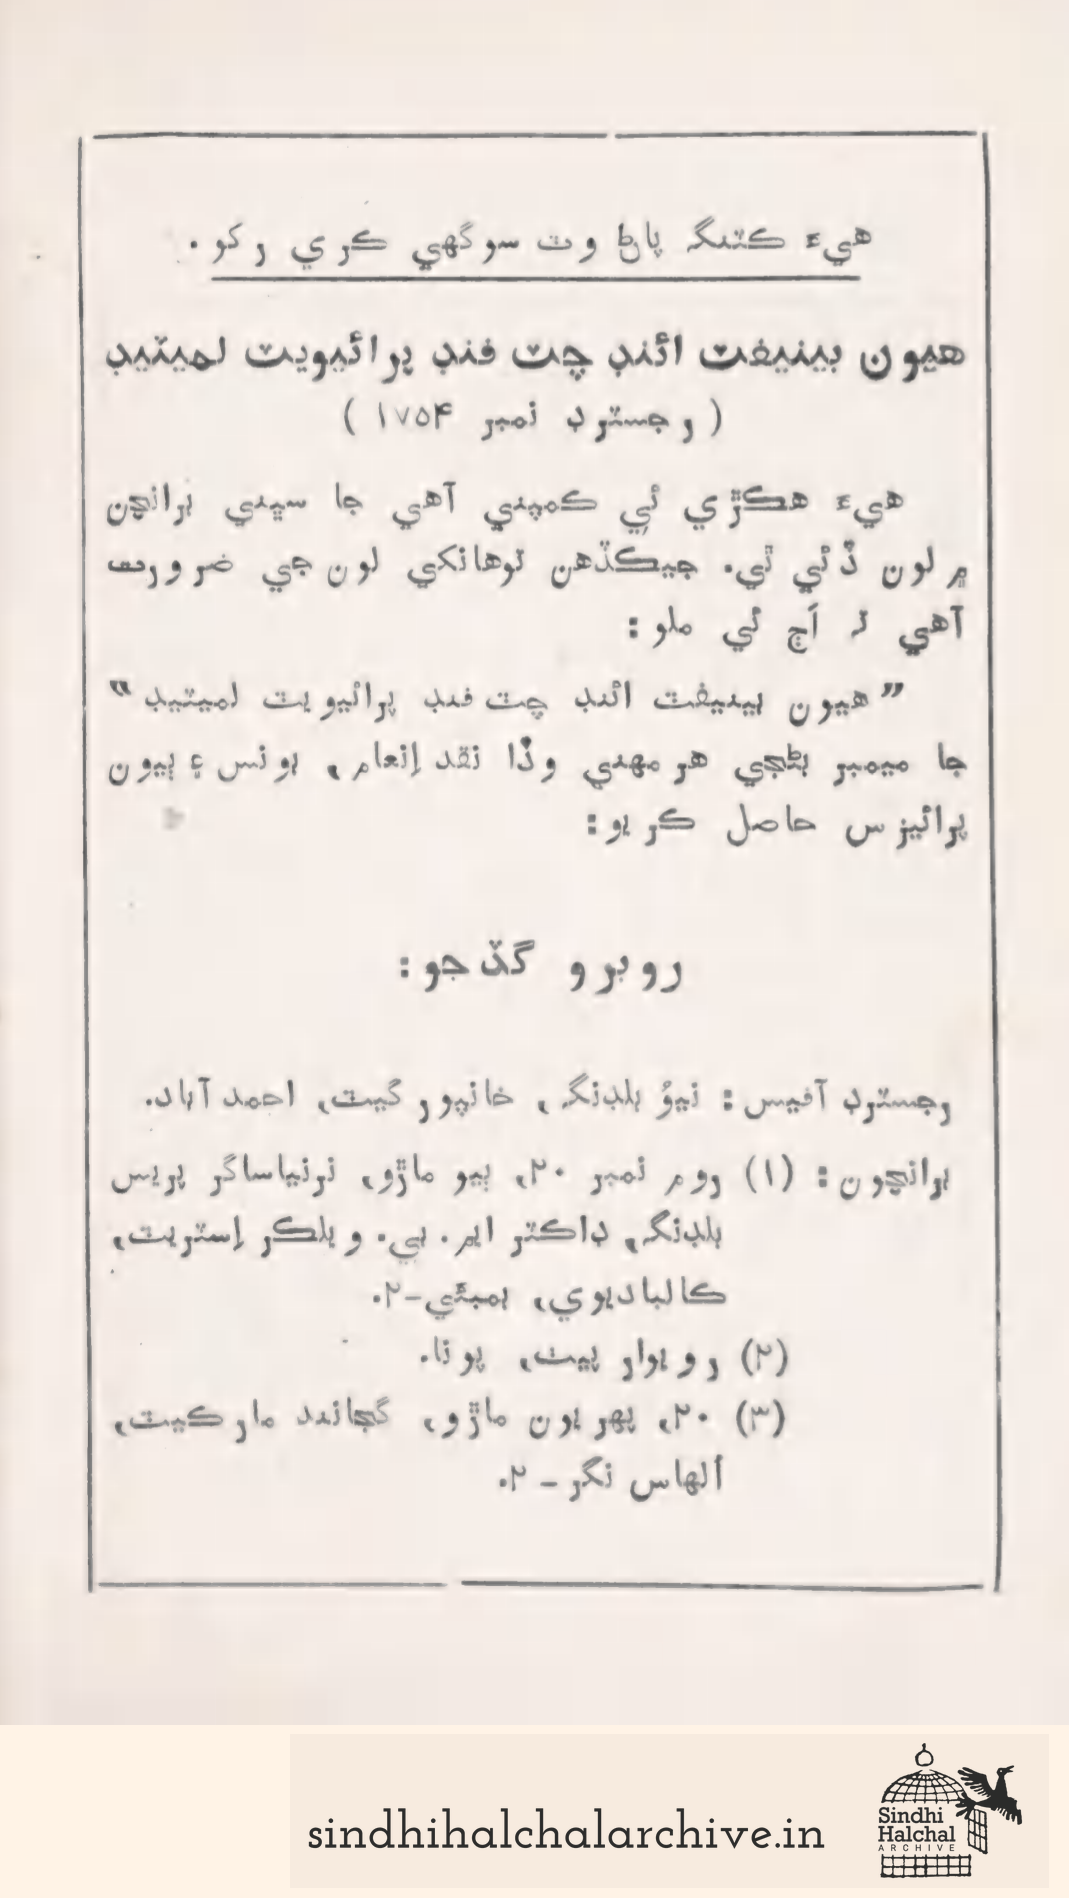 هيءَ ڪٽنگ پاڻ وٽ سوگهي ڪري رکو.
هيون بينيفٽ ائنڊ چٽ فنڊ پرائيويٽ لميٽيڊ
( رجسٽرڊ نمبر ۱۷۵۴ )
هيءَ هڪڙي ئي ڪمپني آهي جا سڀني برانچن
۾ لون ڏئي ٿي. جيڪڏهن توهانکي لون جي ضرورت
آهي تہ اَڄ ئي ملو:
”هيون بينيفٽ ائنڊ چٽ فنڊ پرائيويٽ لميٽيڊ“
جا ميمبر بڻجي هر مهني وڏا نقد اِنعام، بونس ۽ ٻيون
پرائيزس حاصل ڪريو:
روبرو گڏجو:
رجسٽرڊ آفيس: نيوُ بلڊنگ، خانپور گيٽ، احمد آباد.
برانچون: (۱) روم نمبر ۲۰، ٻيو ماڙو، نرنياساگر پريس
بلڊنگ، ڊاڪٽر ايم. بي. ويلڪر اِسٽريٽ،
ڪالباديوي، بمبئي-۲.
(۲) رويوار پيٽ، پونا.
(۳) ۲۰، پهريون ماڙو، گجانند مارڪيٽ،
اُلهاس نگر - ۲.
sindhihalchalarchive.in
Sindhi
Halchal
ARCHIVE